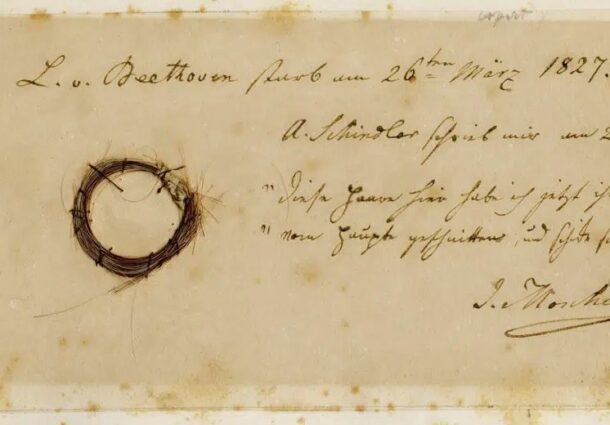 L. v. Beethoven starb am 26ten März 1827.
A. Schindler schrieb mir am
"diese Haare hier habe ich jetzt
" vom Haupte geschnitten, und